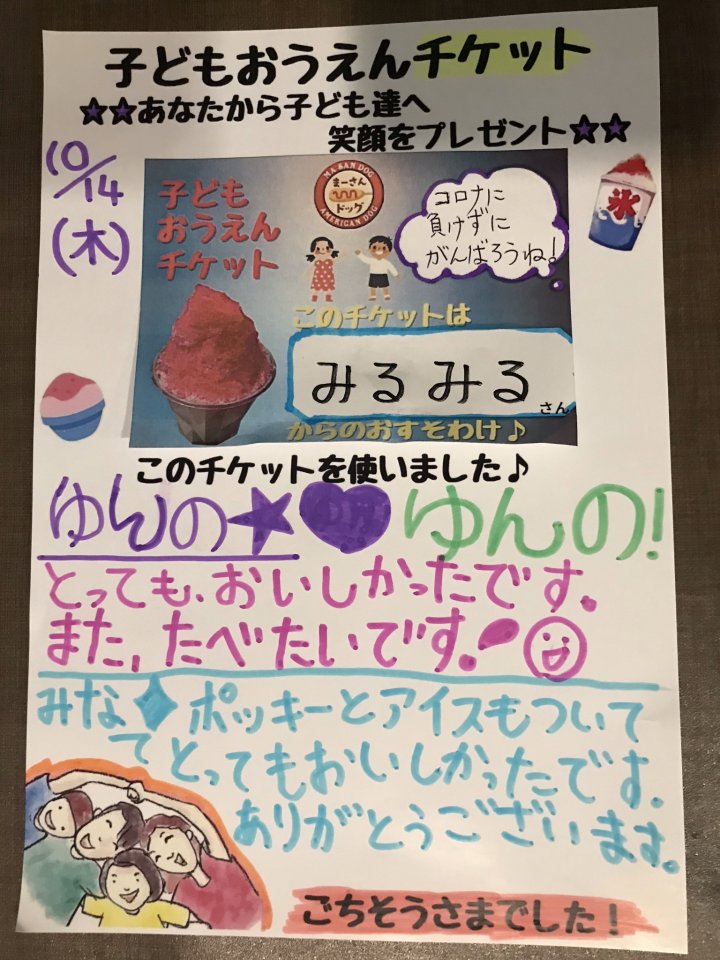 子どもおうえんチケット
☆☆あなたから子ども達へ
笑顔をプレゼント☆☆
10/14
(木)
子ども
おうえん
チケット
MA SAN DOG
まーさん
ドッグ
AMERICAN DOG
コロナに
負けずに
がんばろうね!
氷
このチケットは
みるみる
さん
からのおすそわけ♪
このチケットを使いました♪
ゆんの★♥ゆんの!
とっても、おいしかったです。
また、たべたいです。
みな◆ポッキーとアイスもついて
てとってもおいしかったです。
ありがとうございます。
ごちそうさまでした!